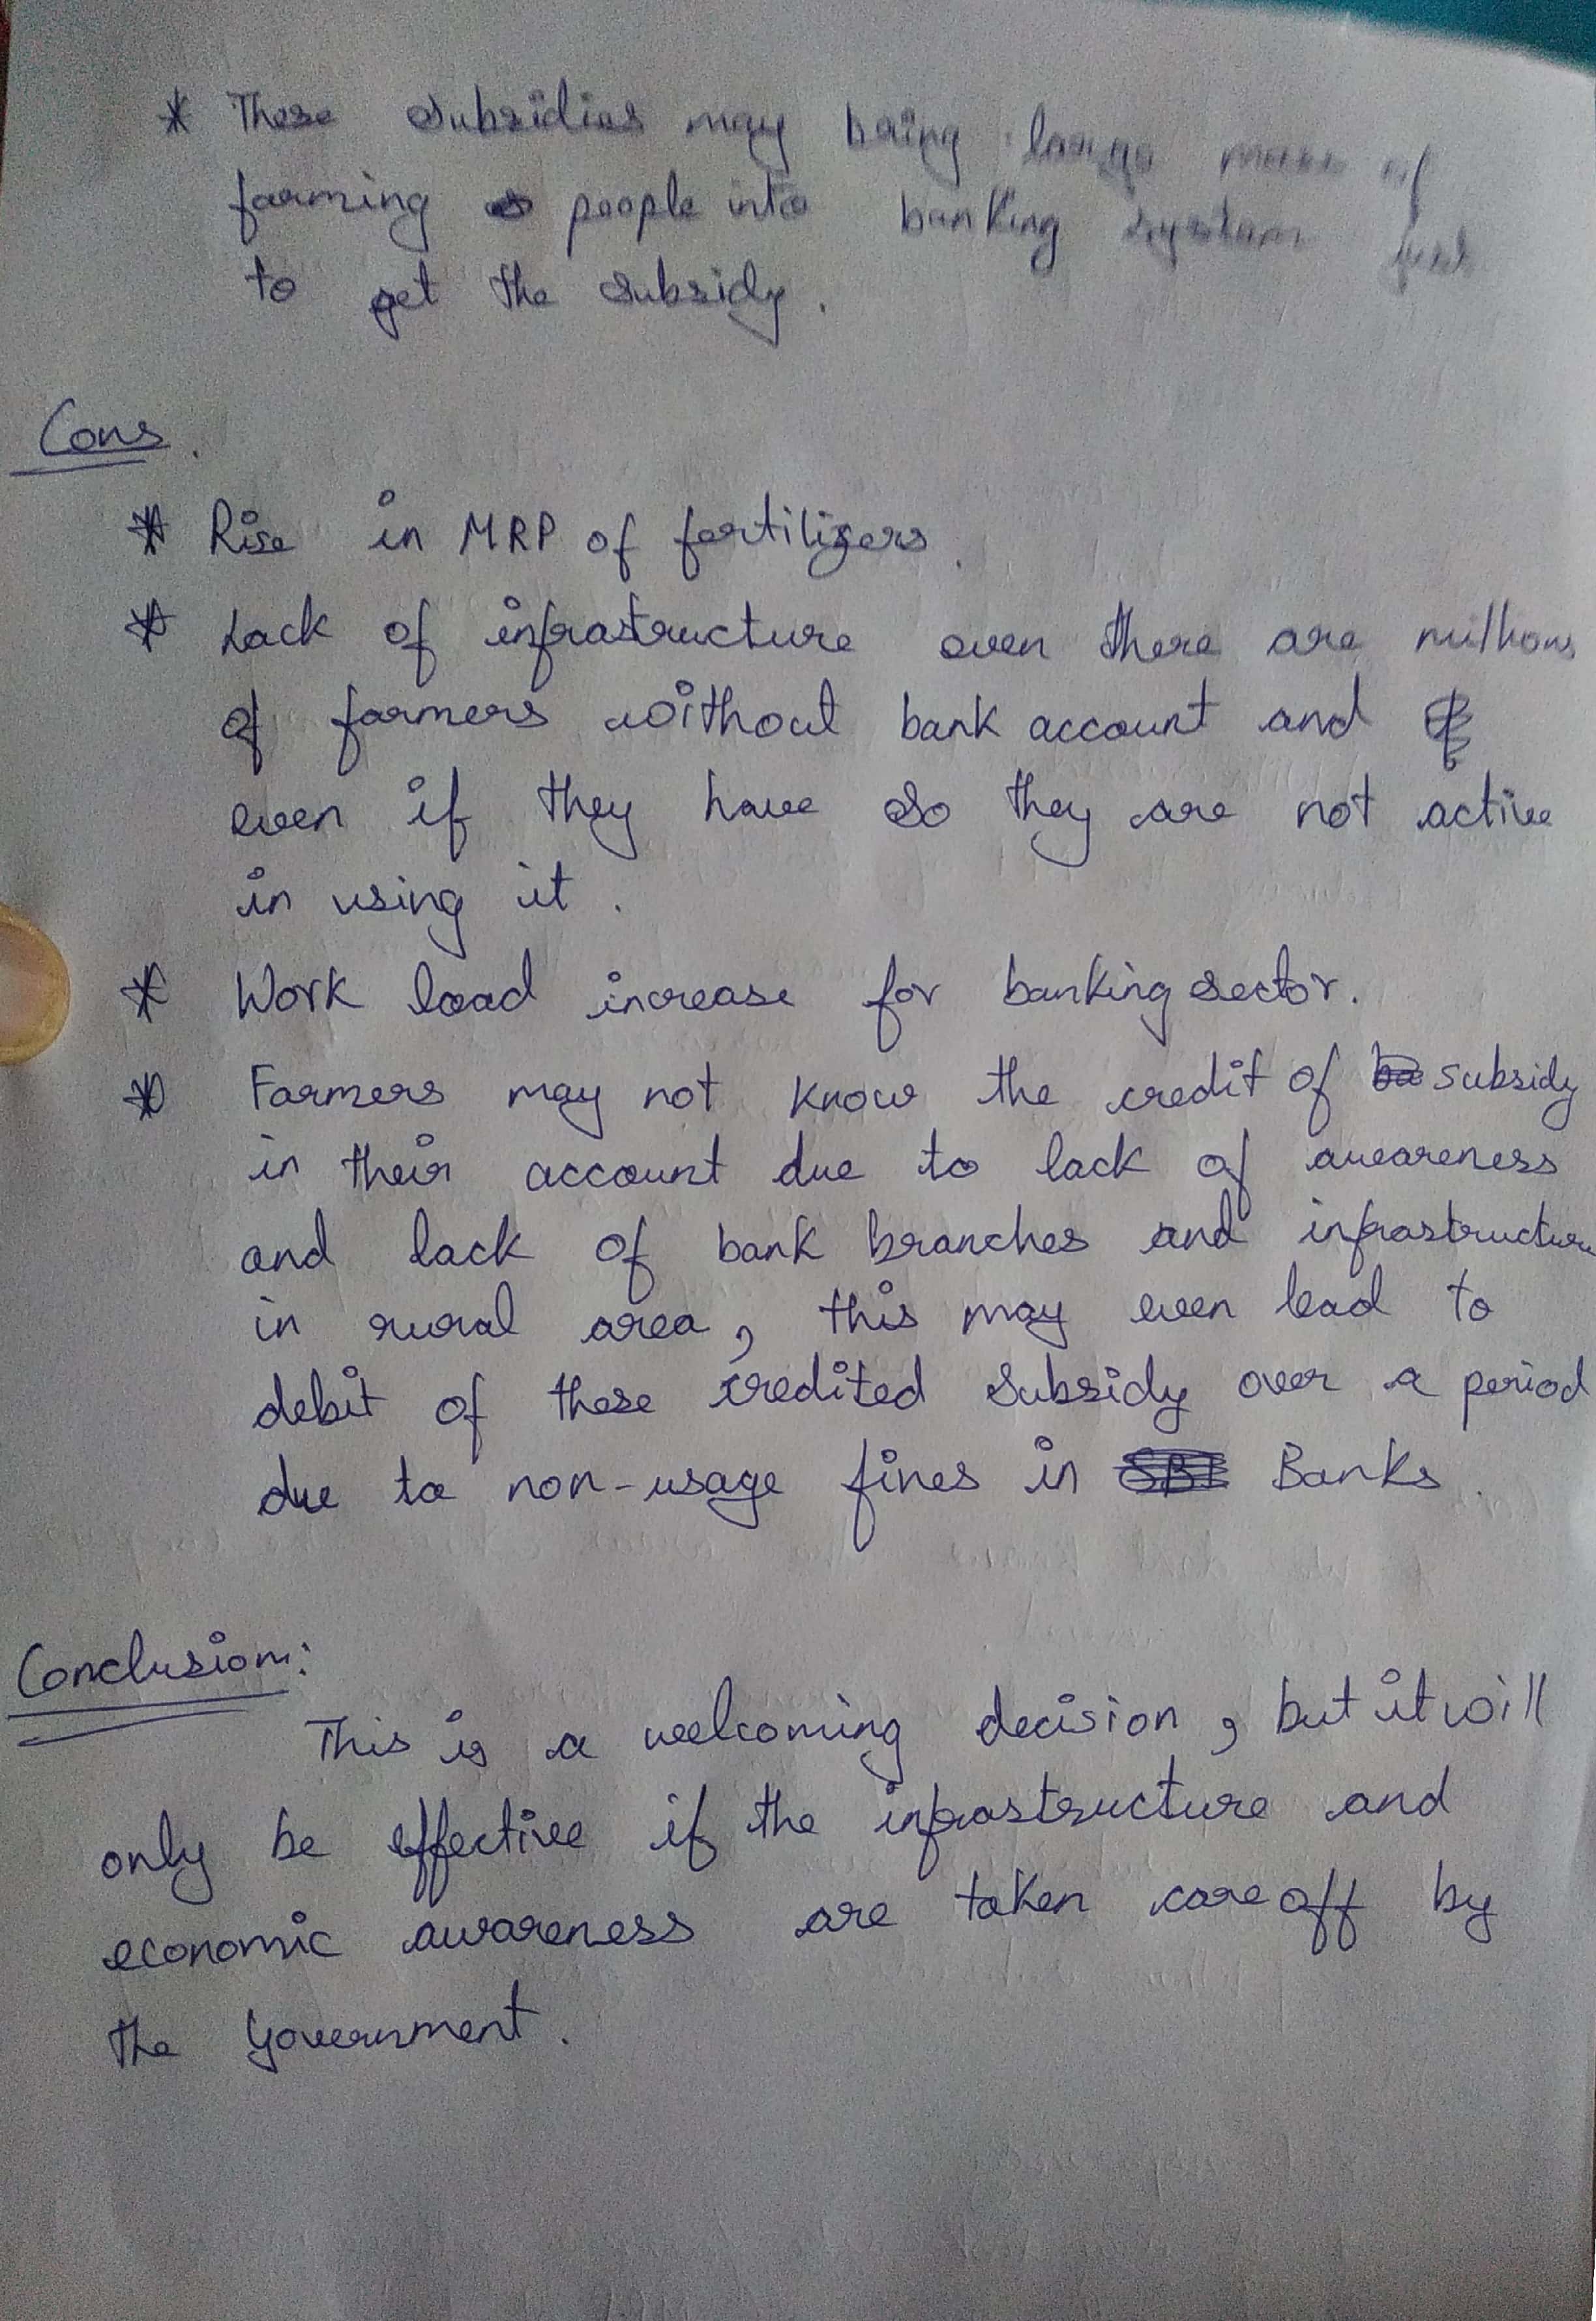 * These subsidies may bring large mass of
farming people into banking system just
to get the subsidy.
Cons.
* Rise in MRP of fertilizers.
* Lack of infrastructure even there are millions
of farmers without bank account and
even if they have so they are not active
in using it.
* Work load increase for banking sector.
* Farmers may not know the credit of subsidy
in their account due to lack of aweareness
and lack of bank branches and infrastructure
in rural area, this may even lead to
debit of these credited subsidy over a period
due to non-usage fines in Banks.
Conclusion:
This is a welcoming decision, but it will
only be effective if the infrastructure and
economic awareness are taken care off by
the Government.